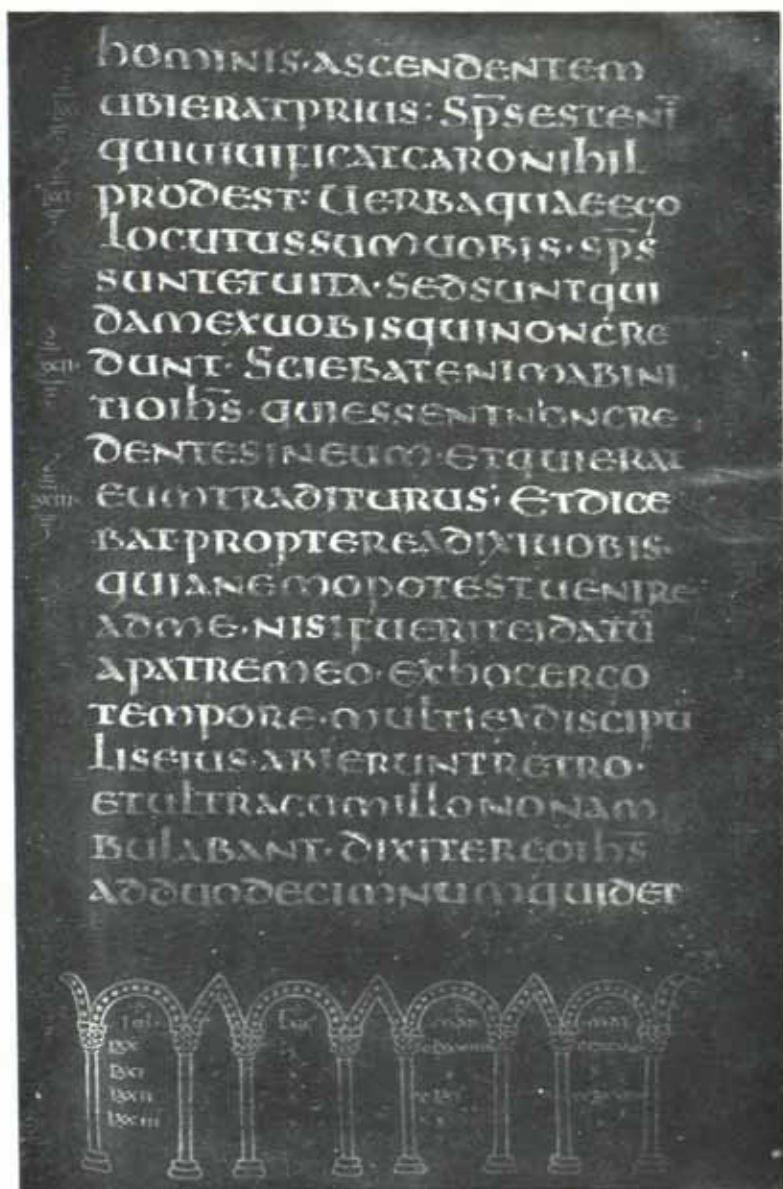 hominis·ascendentem
ubieratprius: Sp̅sestenī
quiuiuificatcaronihil
prodest: Uerbaquaeego
Locutussumuobis·sp̅s
suntetuita·sedsuntqui
damexuobisquinoncre
dunt· Sciebatenimabini
tioih̅s·quiessentnoncre
dentesineum·etquierat
eumtraditurus: Etdice
bat·propterea dixiuobis·
quianemopotestuenire
adme·nisifueriteidatū
apatremeo·exhocergo
tempore·multiexdiscipu
Liseius·abieruntretro·
etultracumillononam
bulabant·dixitergoih̅s
adduodecimnumquidet
lxx
lxxi
lxxii
lxxiii